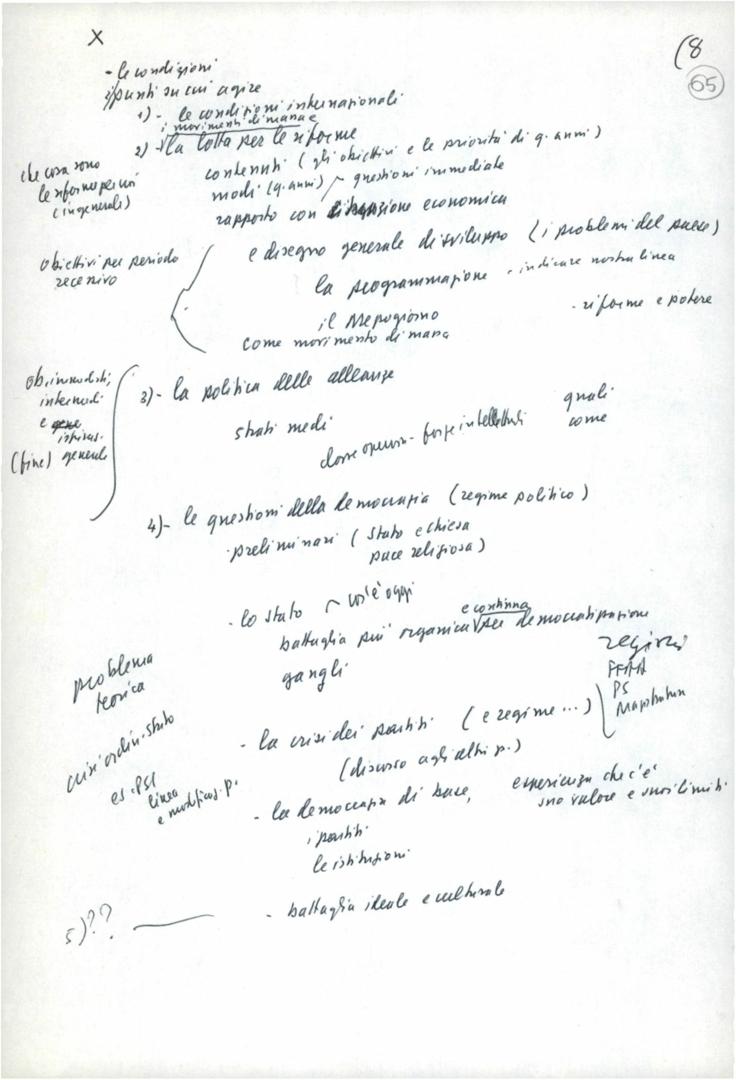 X
(8
65
- le condizioni
i punti su cui agire
1) - le condizioni internazionali
i movimenti di massa e
2) - la lotta per le riforme
che cosa sono
le riforme per noi
(in generale)
contenuti (gli obiettivi e le priorità di q. anni)
modi (q. anni) questioni immediate
rapporto con situazione economica
Obiettivi per periodo
recessivo
e disegno generale di sviluppo (i problemi del paese)
la programmazione - indicare nostra linea
il Mezzogiorno - riforme e potere
come movimento di massa
Ob. immediati,
intermedi
e
generali
(fine)
3) - la politica delle alleanze
strati medi
classe operaia - forze intellettuali
quali
come
4) - le questioni della democrazia (regime politico)
- preliminari (Stato e chiesa
pace religiosa)
- lo stato cos'è oggi
e continua
battaglia più organica per democratizzazione
gangli
regioni
FFAA
PS
Magistratura
problema
teorica
- la crisi dei partiti (e regime ...)
(discorso agli altri p.)
crisi ordin. stato
es. PSI
linea
e modificaz. p.
- la democrazia di base, esperienza che c'è
suo valore e suoi limiti
i partiti
le istituzioni
5) ??
- battaglia ideale e culturale